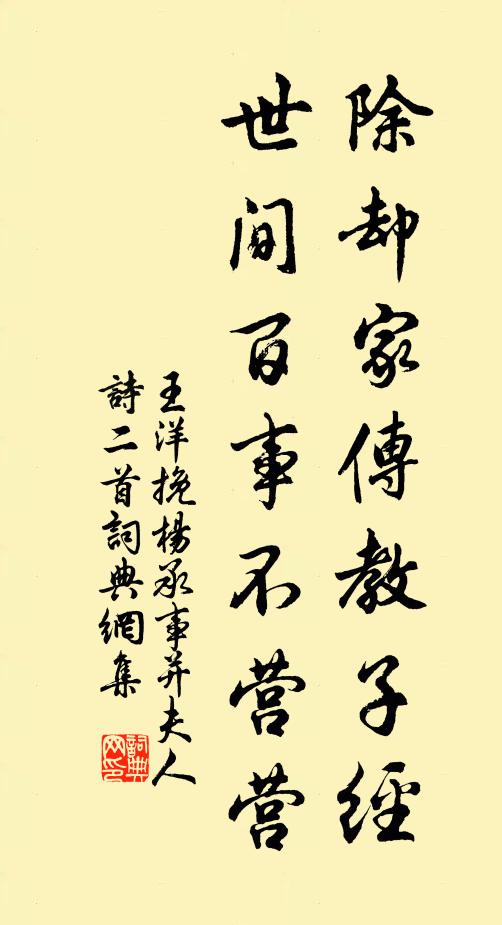 除却家傳教子經
世间百事不营营
王洋挽楊承事并夫人
詩二首詞典網集
詞典網印